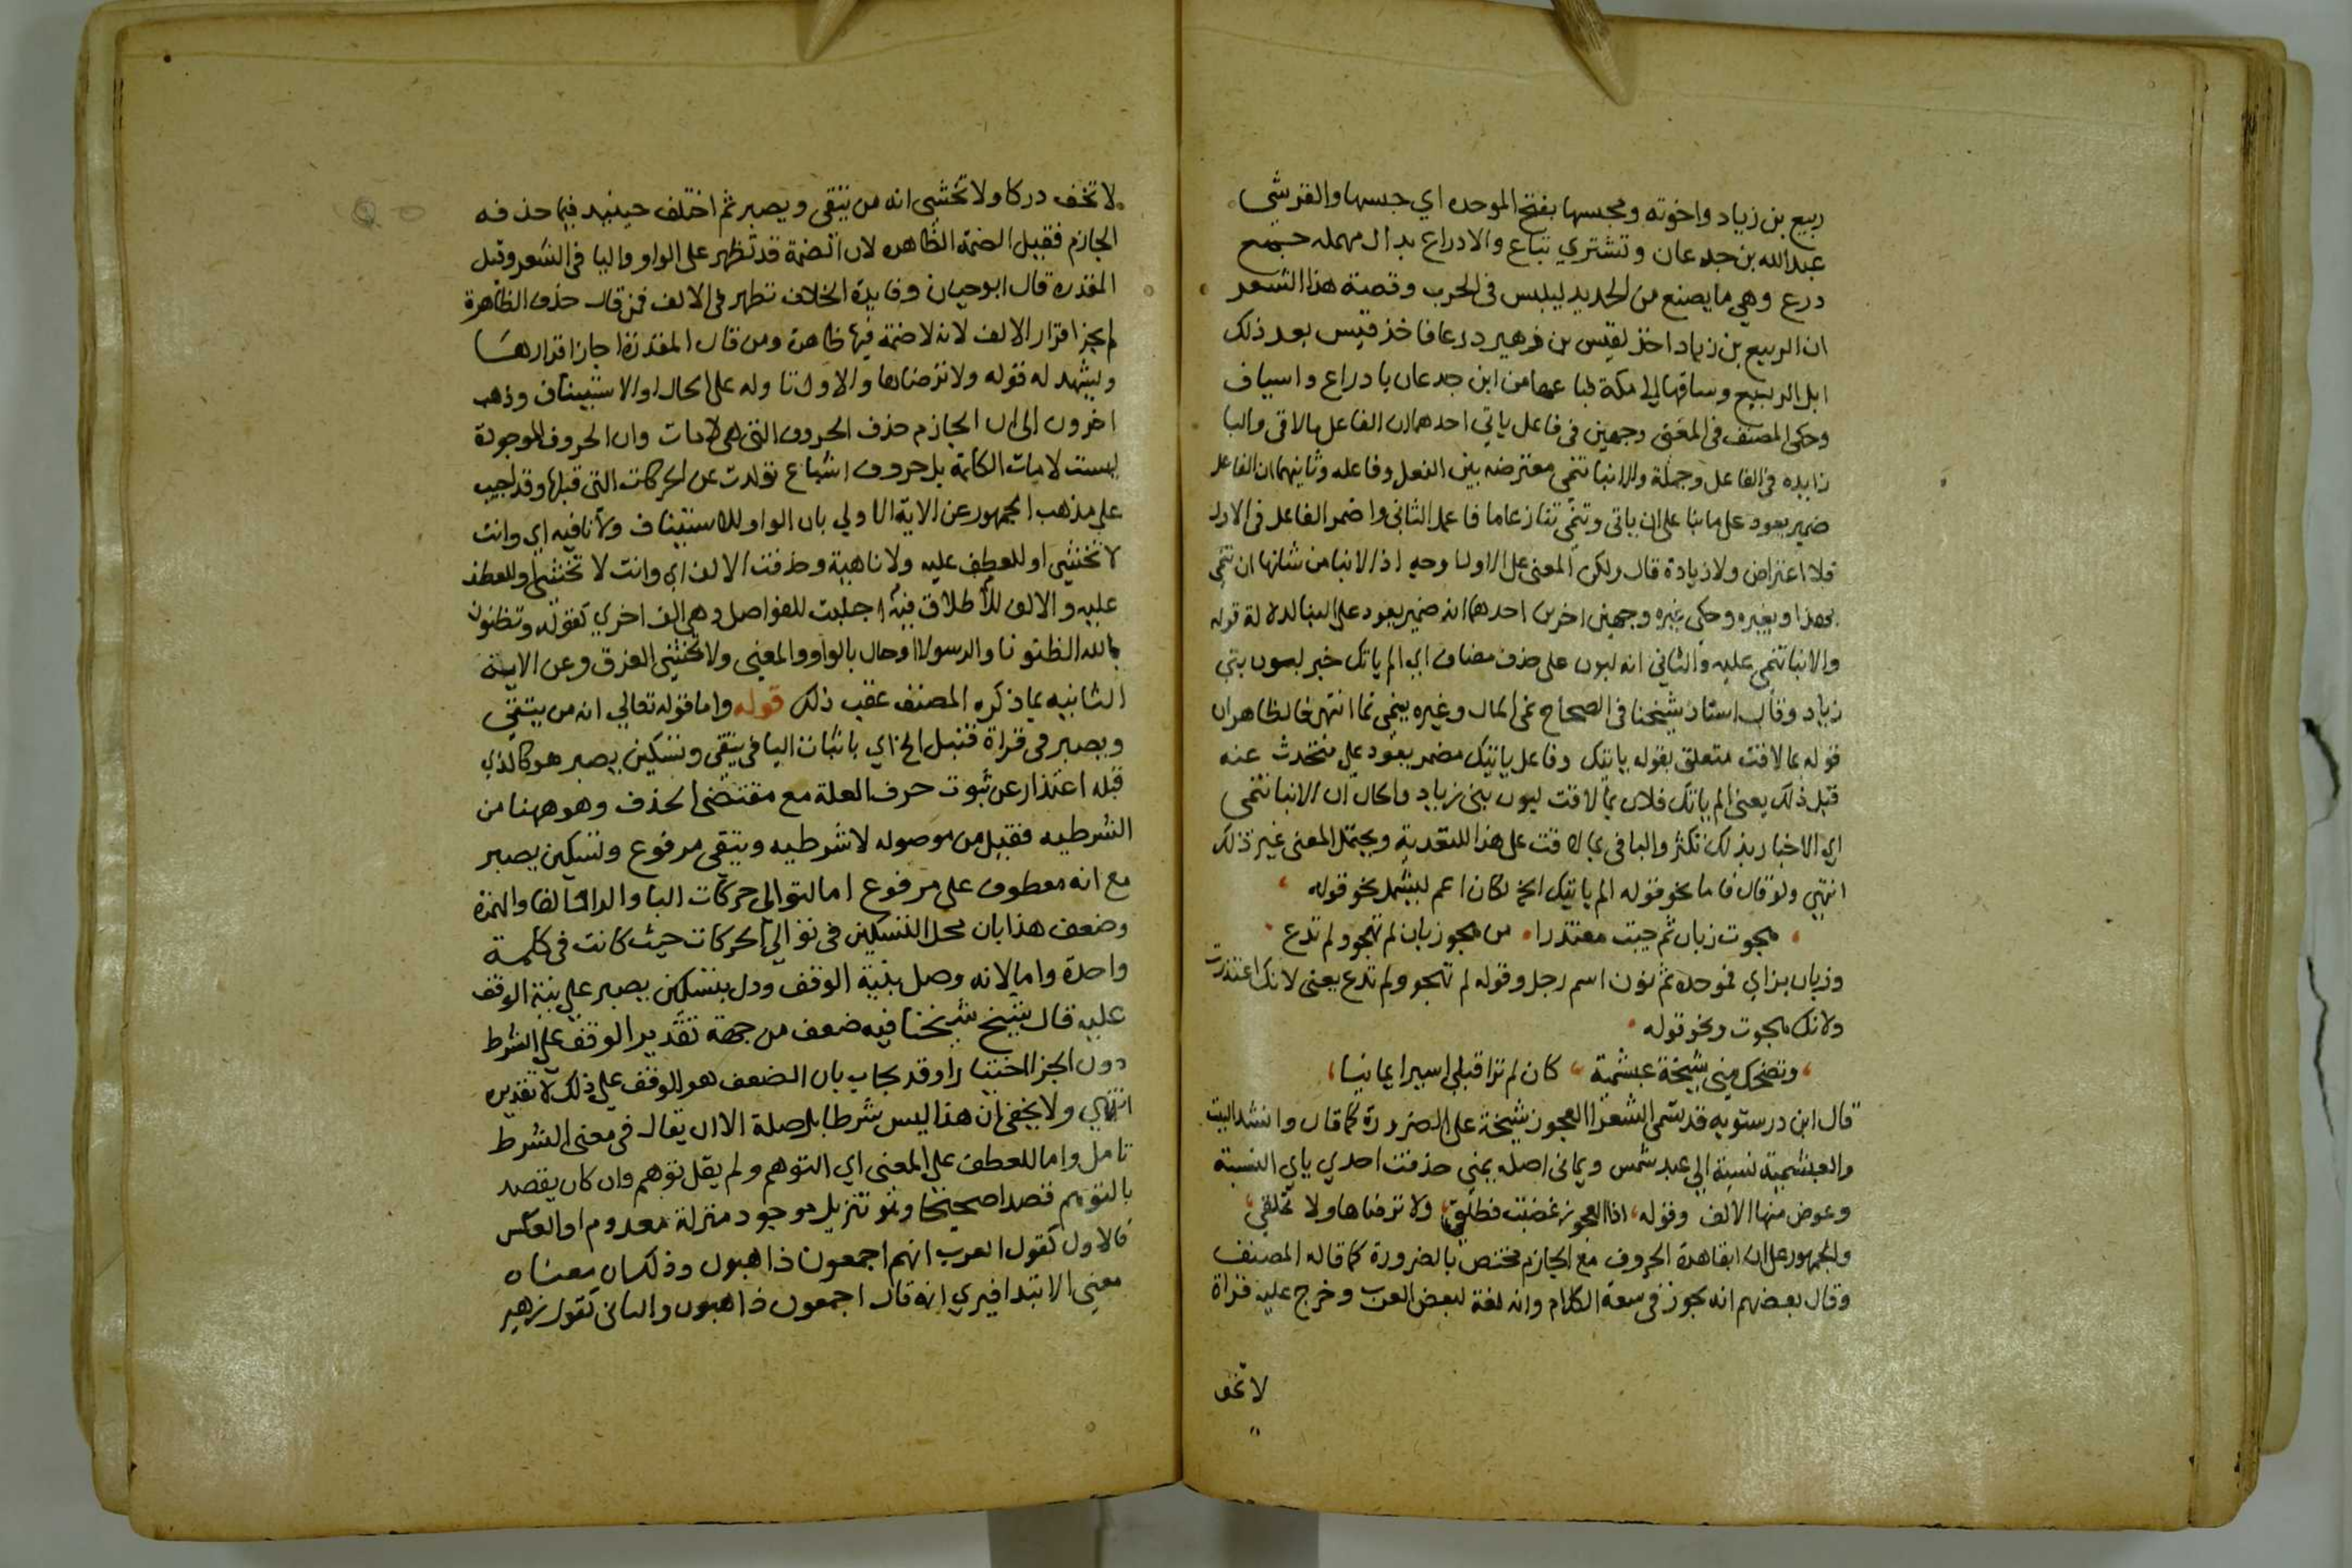 ربيع بن زياد واخوته ومحبسها بفتح الموحده اي حبسها والقرشي
عبدالله بن جدعان وتشتري تباع والادراع بدال مهمله جمع
درع وهي ما يصنع من الحديد ليلبس في الحرب وقصة هذا الشعر
ان الربيع بن زياد اخذ لقيس بن زهير درعا فاخذ قيس بعد ذلك
ابل الربيع وساقها الي مكة فباعها من ابن جدعان بادراع واسياف
وحكى المصنف في المغني وجهين في فاعل ياتي احدهما ان الفاعل بما لاقى والبا
زايده في الفاعل وجملة والانبا تنمي معترضه بين الفعل وفاعله وثانيهما ان الفاعل
ضمير يعود على ما بنا على ان ياتي وتنمي تنازعا ما فاعمل الثاني واضمر الفاعل في الاول
فلا اعتراض ولا زيادة قال ولكن المعنى على الاول اوجه اذ الانبا من شانها ان تنمي
بهذا وبغيره وحكى غيره وجهين اخرين احدهما انه ضمير يعود على النبا لدلالة قوله
والانبا تنمي عليه والثاني انه لبون على حذف مضاف اي الم ياتك خبر لبون بني
زياد وقال استاذ شيخنا في الصحاح نمى المال وغيره ينمي نما انتهى فالظاهر ان
قوله بما لاقت متعلق بقوله ياتيك وفاعل ياتيك مضمر يعود على متحدث عنه
قبل ذلك يعني الم ياتك فلان بما لاقت لبون بني زياد والحال ان الانبا تنمي
اي الاخبار بذلك تكثر والبا في بما لاقت على هذا للتعدية ويحتمل المعنى غير ذلك
انتهى ولو قال فاما نحو قوله الم ياتيك الخ لكان اعم ليشمل نحو قوله
هجوت زبان ثم جيت معتذرا من هجو زبان لم تهجو ولم تدع
وزبان بزاي فموحده ثم نون اسم رجل وقوله لم تهجو ولم تدع يعني لانك اعتذرت
ولانك هجوت ونحو قوله
وتضحك مني شيخة عبشمية كان لم ترا قبلي اسيرا يمانيا
قال ابن درستويه قد تسمى الشعرا العجوز شيخة على الضرورة كما قال وانشد البيت
والعبشمية نسبة الي عبد شمس ويماني اصله يمني حذفت احدي ياي النسبة
وعوض منها الالف وقوله اذا العجوز غضبت فطلق ولا ترضاها ولا تملقي
والجمهور على ان ابقا هذه الحروف مع الجازم مختص بالضرورة كما قاله المصنف
وقال بعضهم انه يجوز في سعة الكلام وانه لغة لبعض العرب وخرج عليه قراة
لا تخف
لا تخف دركا ولا تخشى انه من يتقي ويصبر ثم اختلف حينيذ فيما حذفه
الجازم فقيل الضمة الظاهره لان الضمة قد تظهر على الواو واليا في الشعر وقيل
المقدره قال ابو حيان وفايدة الخلاف تظهر في الالف فمن قال حذف الظاهرة
لم يجز اقرار الالف لانه لا ضمة فيها ظاهرة ومن قال المقدرة اجاز اقرارها
ويشهد له قوله ولا ترضاها والاول تاوله على الحال او الاستيناف وذهب
اخرون الى ان الجازم حذف الحروف التي هي لامات وان الحروف الموجودة
ليست لامات الكلمة بل حروف اشباع تولدت عن الحركات التي قبلها وقد اجيب
على مذهب الجمهور عن الاية الاولي بان الواو للاستيناف ولا نافيه اي وانت
لا تخشي او للعطف عليه ولا ناهية وحذفت الالف اي وانت لا تخشى او للعطف
عليه والالف للاطلاق فيه اجتلبت للفواصل وهي الف اخري كقوله وتظنون
بالله الظنونا والرسولا او حال بالواو والمعني ولا تخشى الغرق وعن الاية
الثانيه بما ذكره المصنف عقب ذلك قوله واما قوله تعالي انه من يتقي
ويصبر في قراة قنبل الخ اي باثبات اليا في يتقي وتسكين يصبر هو كالذي
قبله اعتذار عن ثبوت حرف العلة مع مقتضى الحذف وهو ههنا من
الشرطيه فقيل من موصوله لا شرطيه ويتقي مرفوع وتسكين يصبر
مع انه معطوف على مرفوع اما لتوالي حركات البا والرا والفا والهمزة
وضعف هذا بان محل التسكين في توالي الحركات حيث كانت في كلمة
واحدة واما لانه وصل بنية الوقف ودل بتسكين يصبر على نية الوقف
عليه قال شيخ شيخنا فيه ضعف من جهة تقدير الوقف علي الشرط
دون الجزا اختيارا وقد يجاب بان الضعف هو الوقف علي ذلك لا تقديره
انتهي ولا يخفى ان هذا ليس شرطا بل صلة الا ان يقال في معنى الشرط
تامل واما للعطف علي المعنى اي التوهم ولم يقل توهم وان كان يقصد
بالتوهم قصدا صحيحا وهو تنزيل موجود منزلة معدوم او العكس
فالاول كقول العرب انهم اجمعون ذاهبون وذلك ان معناه
معنى الابتدا فيري انه قال اجمعون ذاهبون والثاني كقول زهير